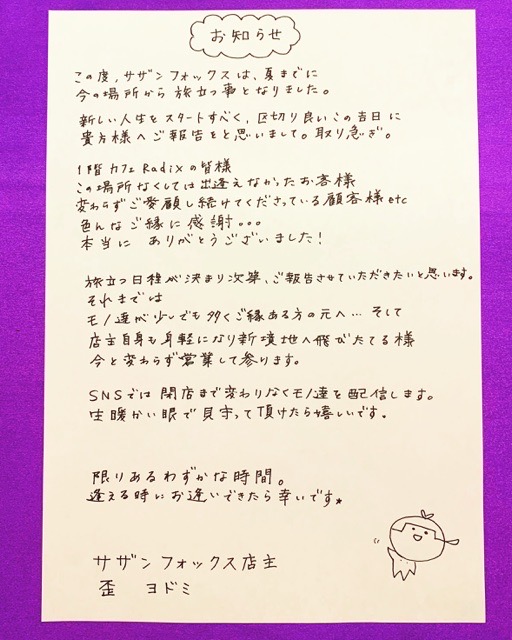 お知らせ
この度、サザンフォックスは、夏までに
今の場所から旅立つ事となりました。
新しい人生をスタートすべく、区切り良いこの吉日に
貴方様へご報告をと思いまして。取り急ぎ。
1階カフェRadixの皆様
この場所なくしては出逢えなかったお客様
変わらずご愛顧し続けてくださっている顧客様etc
色んなご縁に感謝。。。
本当に ありがとうございました!
旅立つ日程が決まり次第、ご報告させていただきたいと思います。
それまでは
モノ達が少しでも多くご縁ある方の元へ…そして
店主自身も身軽になり新境地へ飛びたてる様
今と変わらず営業して参ります。
SNSでは閉店まで変わりなくモノ達を配信します。
生暖かい眼で見守って頂けたら嬉しいです。
限りあるわずかな時間。
逢える時にお逢いできたら幸いです★
サザンフォックス店主
歪 ヨドミ